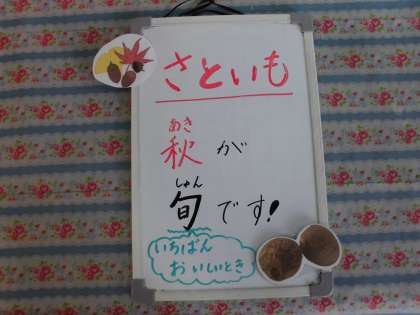 さといも
あき
秋が
しゅん
旬です!
いちばん
おいしいとき